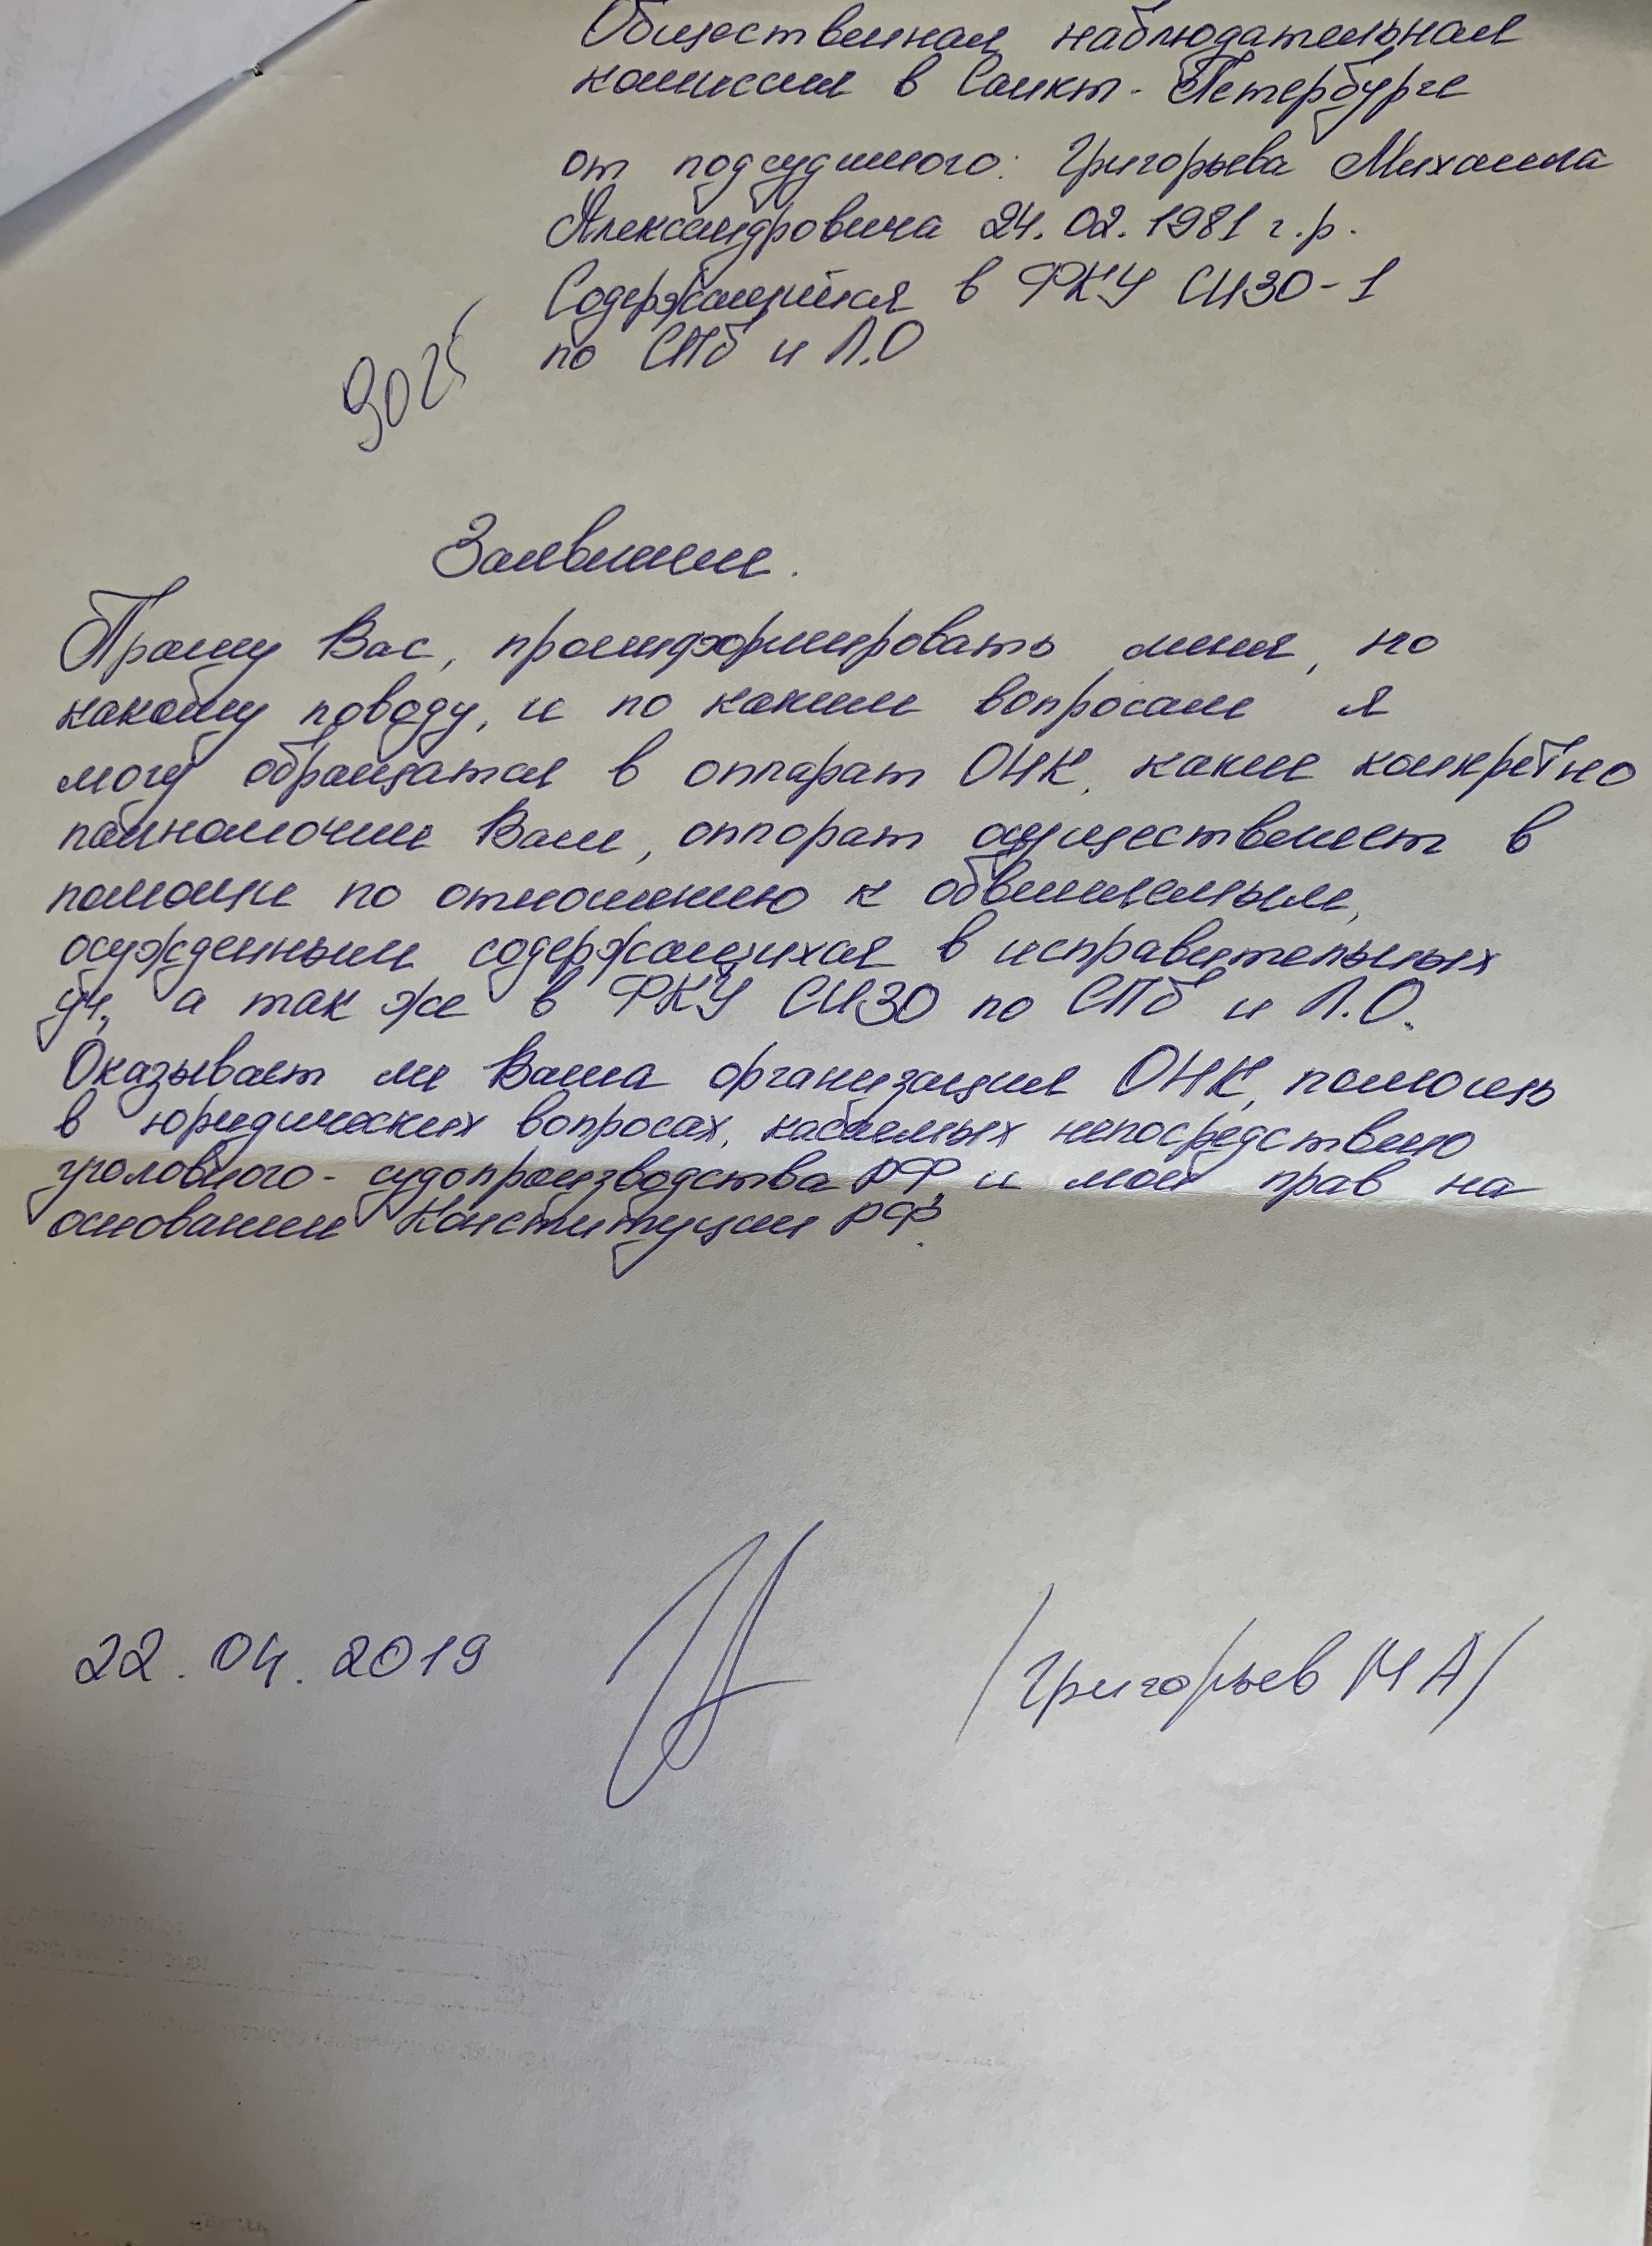 Общественная наблюдательная
комиссия в Санкт-Петербурге
от подсудимого: Григорьева Михаила
Александровича 24.02.1981 г.р.
Содержащийся в ФКУ СИЗО-1
по СПб и Л.О
Заявление.
Прошу Вас, проинформировать меня, по
какому поводу, и по каким вопросам я
могу обращатся в аппарат ОНК, какие конкретно
полномочие Ваш, аппорат осуществляет в
помощи по отношению к обвиняемым,
осужденным содержащихся в исправительных
уч, а так же в ФКУ СИЗО по СПб и Л.О.
Оказывает ли Ваша организация ОНК, помощь
в юридических вопросах, непосредствено
уголовного-судопроизводства РФ, и моей прав на
основании Конституции РФ.
22.04.2019
/Григорьев М А/